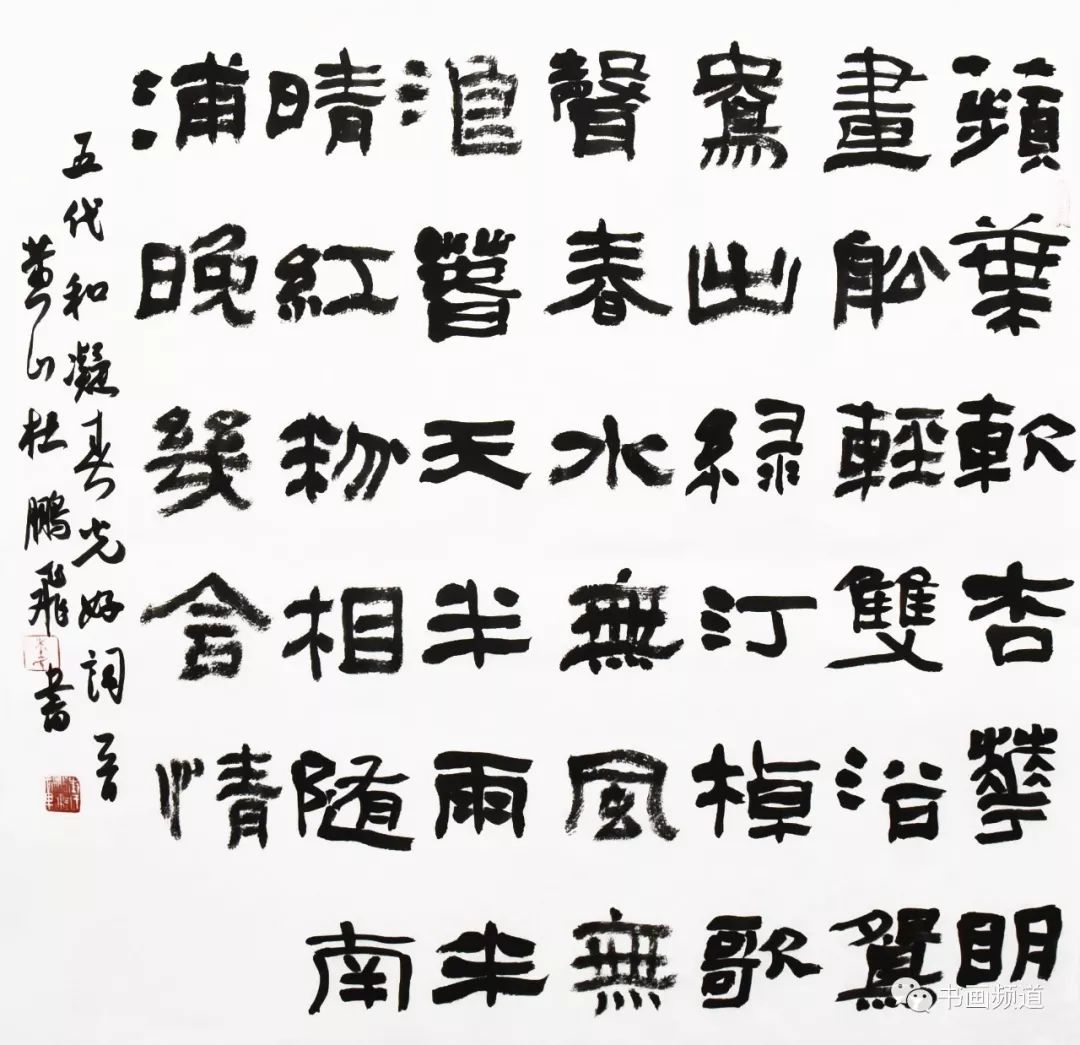 蘋葉軟杏華明
畫舩輕雙浴鴛
鴦出綠汀棹歌
聲春水無風無
浪萅天半雨半
晴紅粉相隨南
浦晚幾含情
五代和凝春光好詞一首
黄山杜鵬飛書
书画频道